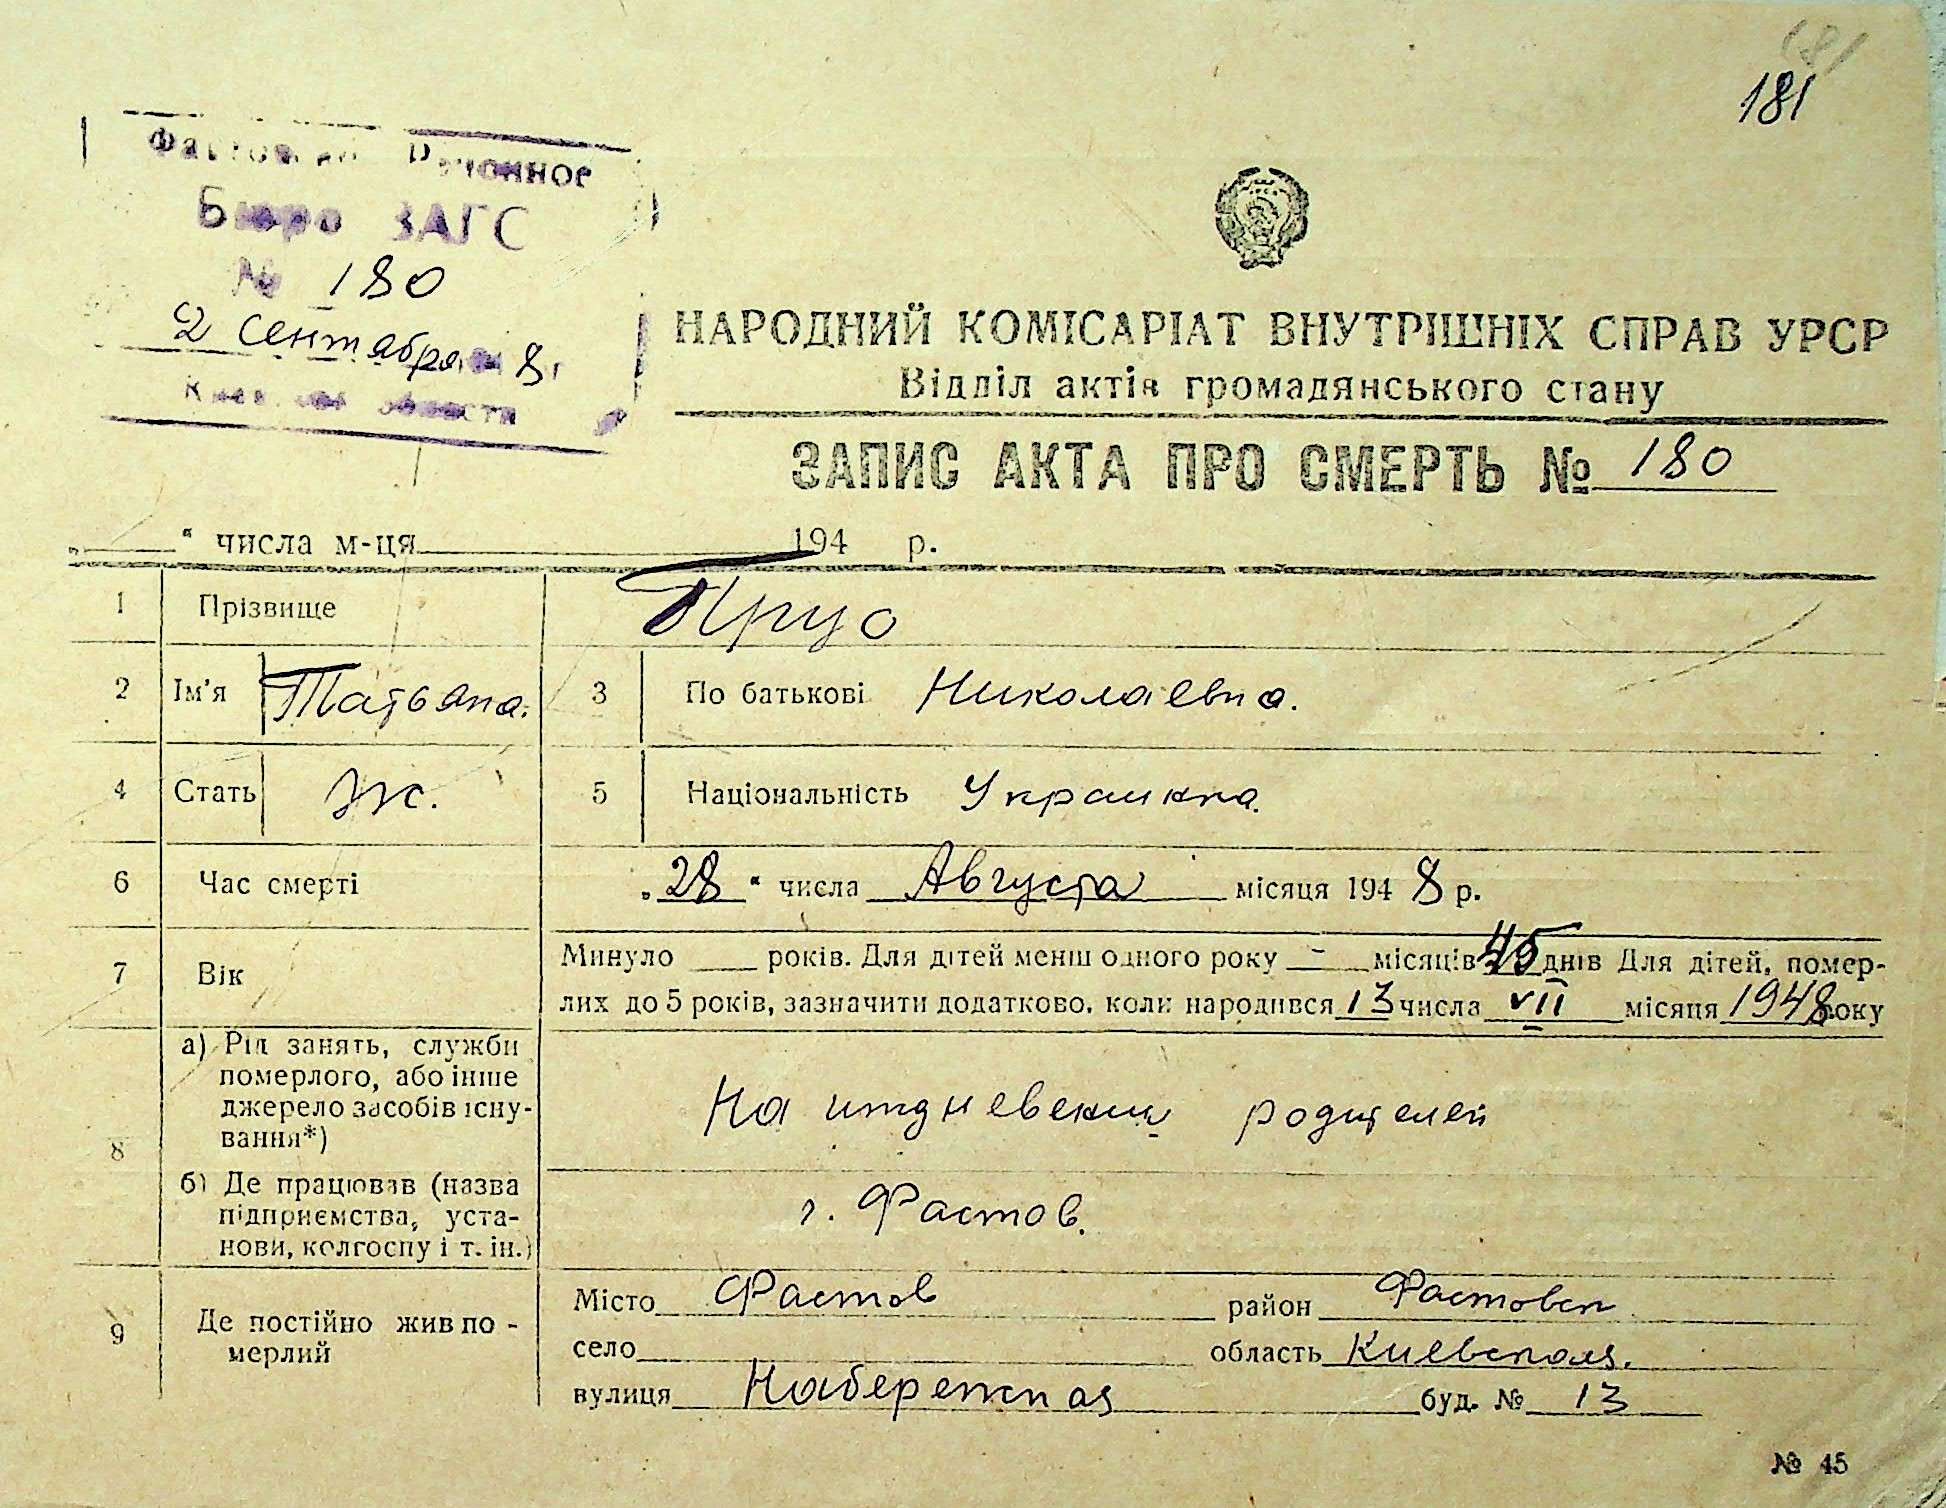 181
181
Районное
Бюро ЗАГС
№ 180
2 Сентября 8 г
области
НАРОДНИЙ КОМІСАРІАТ ВНУТРІШНІХ СПРАВ УРСР
Відділ актів громадянського стану
ЗАПИС АКТА ПРО СМЕРТЬ № 180
„ “ числа м-ця 194 р.
1 Прізвище Прус
2 Ім’я Татьяна. 3 По батькові Николаевна.
4 Стать ж. 5 Національність Украинка.
6 Час смерті „28“ числа Августа місяця 1948 р.
7 Вік Минуло років. Для дітей менш одного року – місяців 45 днів Для дітей, помер-
лих до 5 років, зазначити додатково, коли народився 13 числа VII місяця 1948 року
8 а) Рід занять, служби
померлого, або інше
джерело засобів існу-
вання*) На иждневении родителей
б) Де працював (назва
підприємства, уста-
нови, колгоспу і т. ін.) г. Фастов.
9 Де постійно жив по-
мерлий
Місто Фастов район Фастовск
село область Киевская.
вулиця Набережная буд. № 13
№ 45